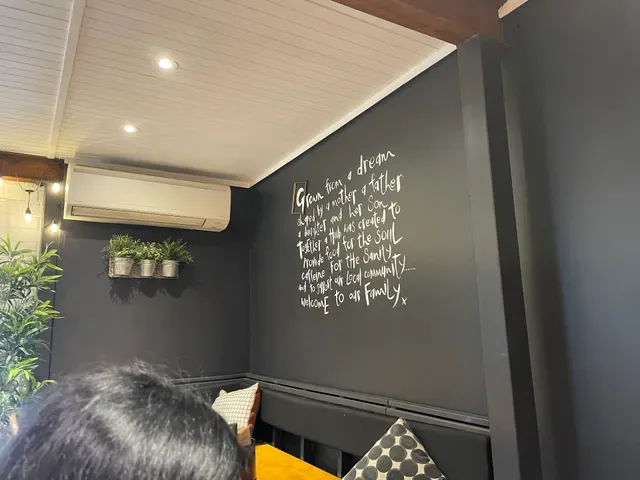 Grown from a dream
shared by a mother a father
a daughter and her son
Together a Hub was created to
Provide food for the SOUL
caffeine FOR the Sanity
and to support our Local community....
welcomE to our Family x